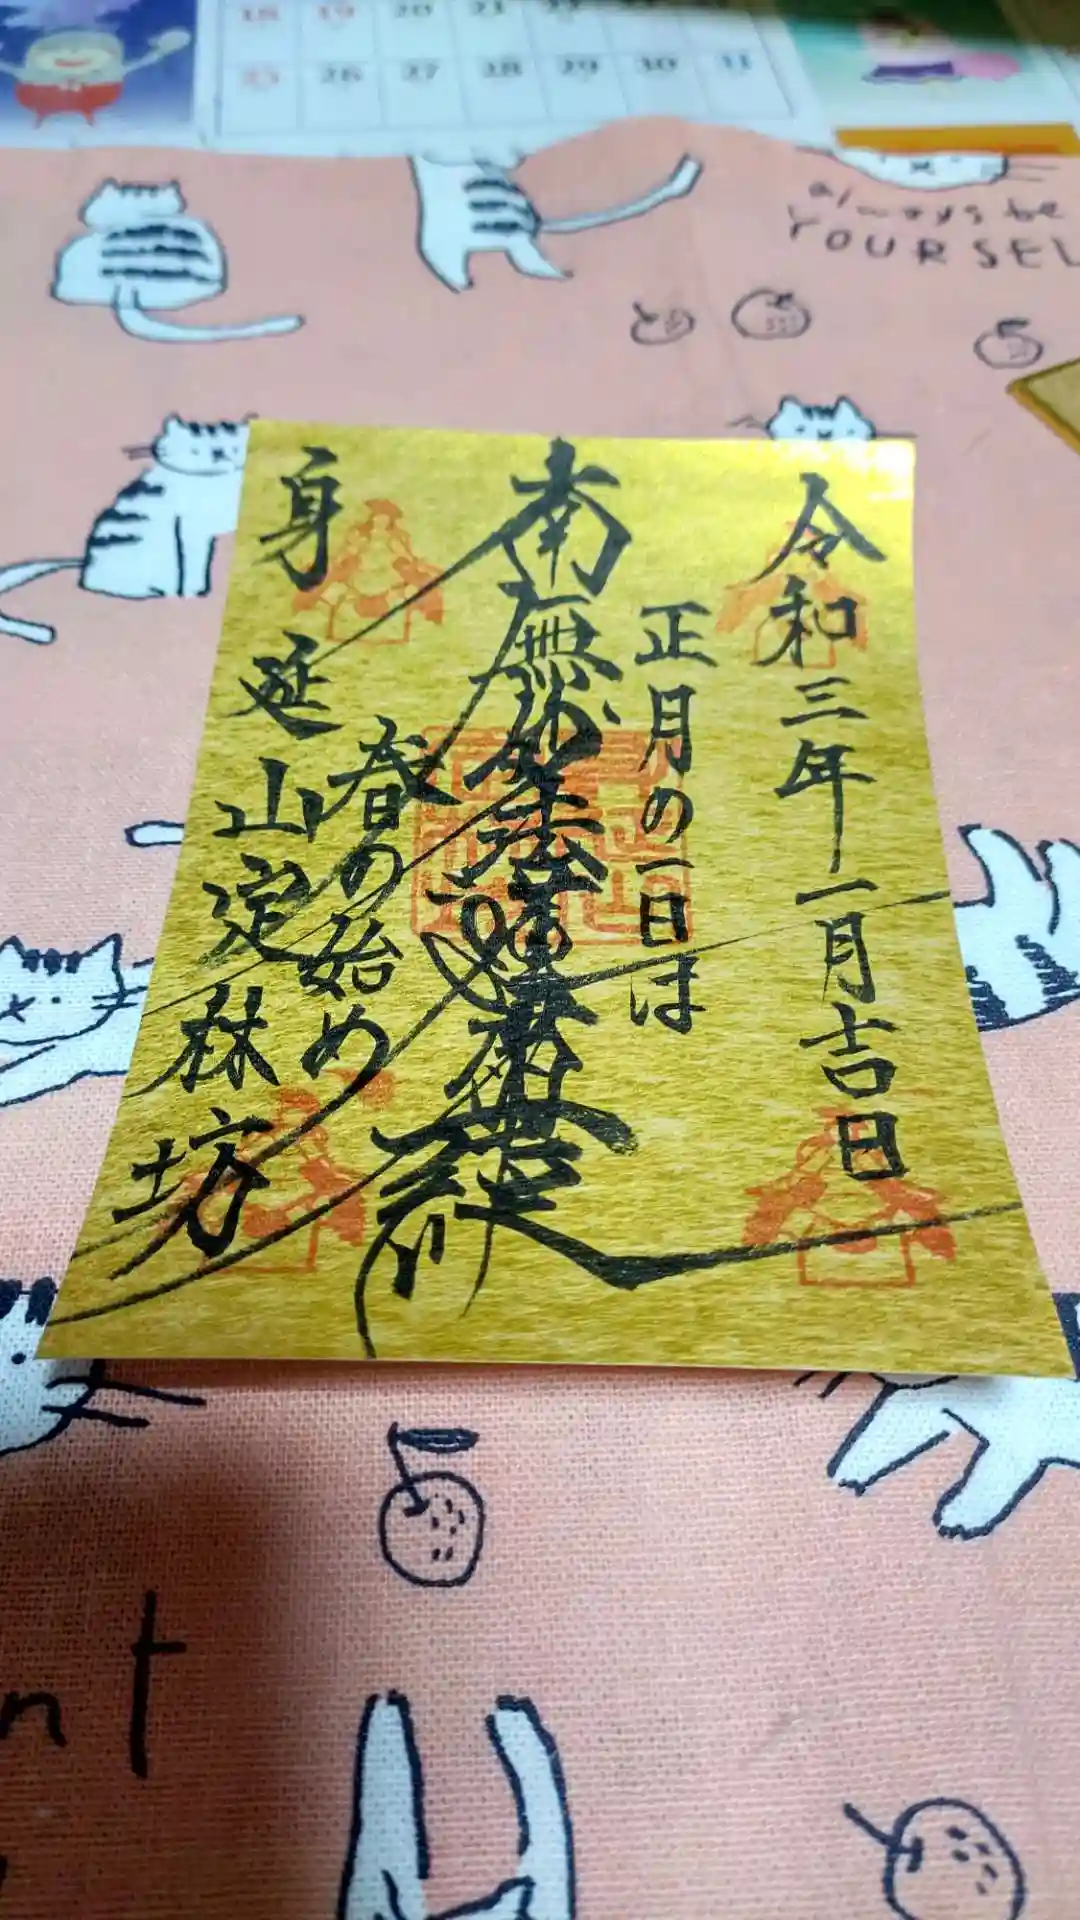 18 19 20 21 22
25 26 27 28 29 30 31
always be
YOURSEL
令和三年一月吉日
正月の一日は
南無妙法蓮華経
春の始め
身延山定林坊
nt